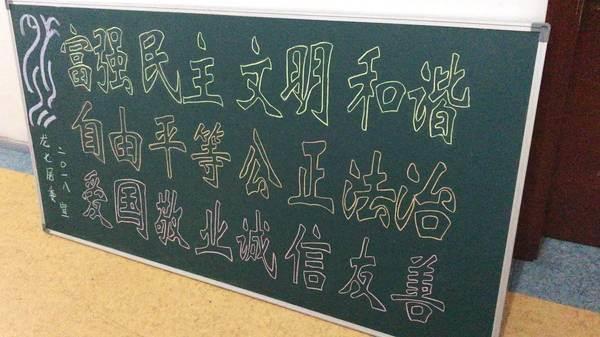 富强民主文明和谐
自由平等公正法治
爱国敬业诚信友善
龙七居委
二〇一八 宣